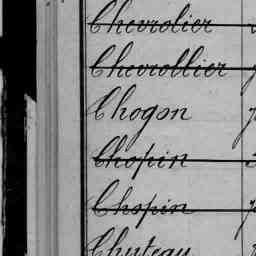 Chevrolier
Chevrollier
Chogon
Chopin
Chopin
Chuteau